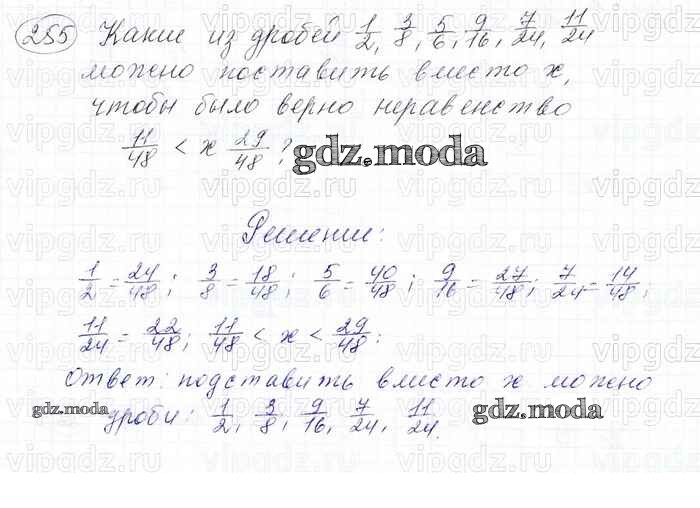 255 Какие из дробей 1/2, 3/8, 5/6, 9/16, 7/24, 11/24
можно поставить вместо x,
чтобы было верно неравенство
11/48 < x 29/48 ?
gdz.moda
Решение:
1/2 = 24/48; 3/8 = 18/48; 5/6 = 40/48; 9/16 = 27/48; 7/24 = 14/48;
11/24 = 22/48; 11/48 < x < 29/48:
Ответ: подставить вместо x можно
gdz.moda дроби: 1/2, 3/8, 9/16, 7/24, 11/24. gdz.moda
vipgdz vipgdz vipgdz.ru